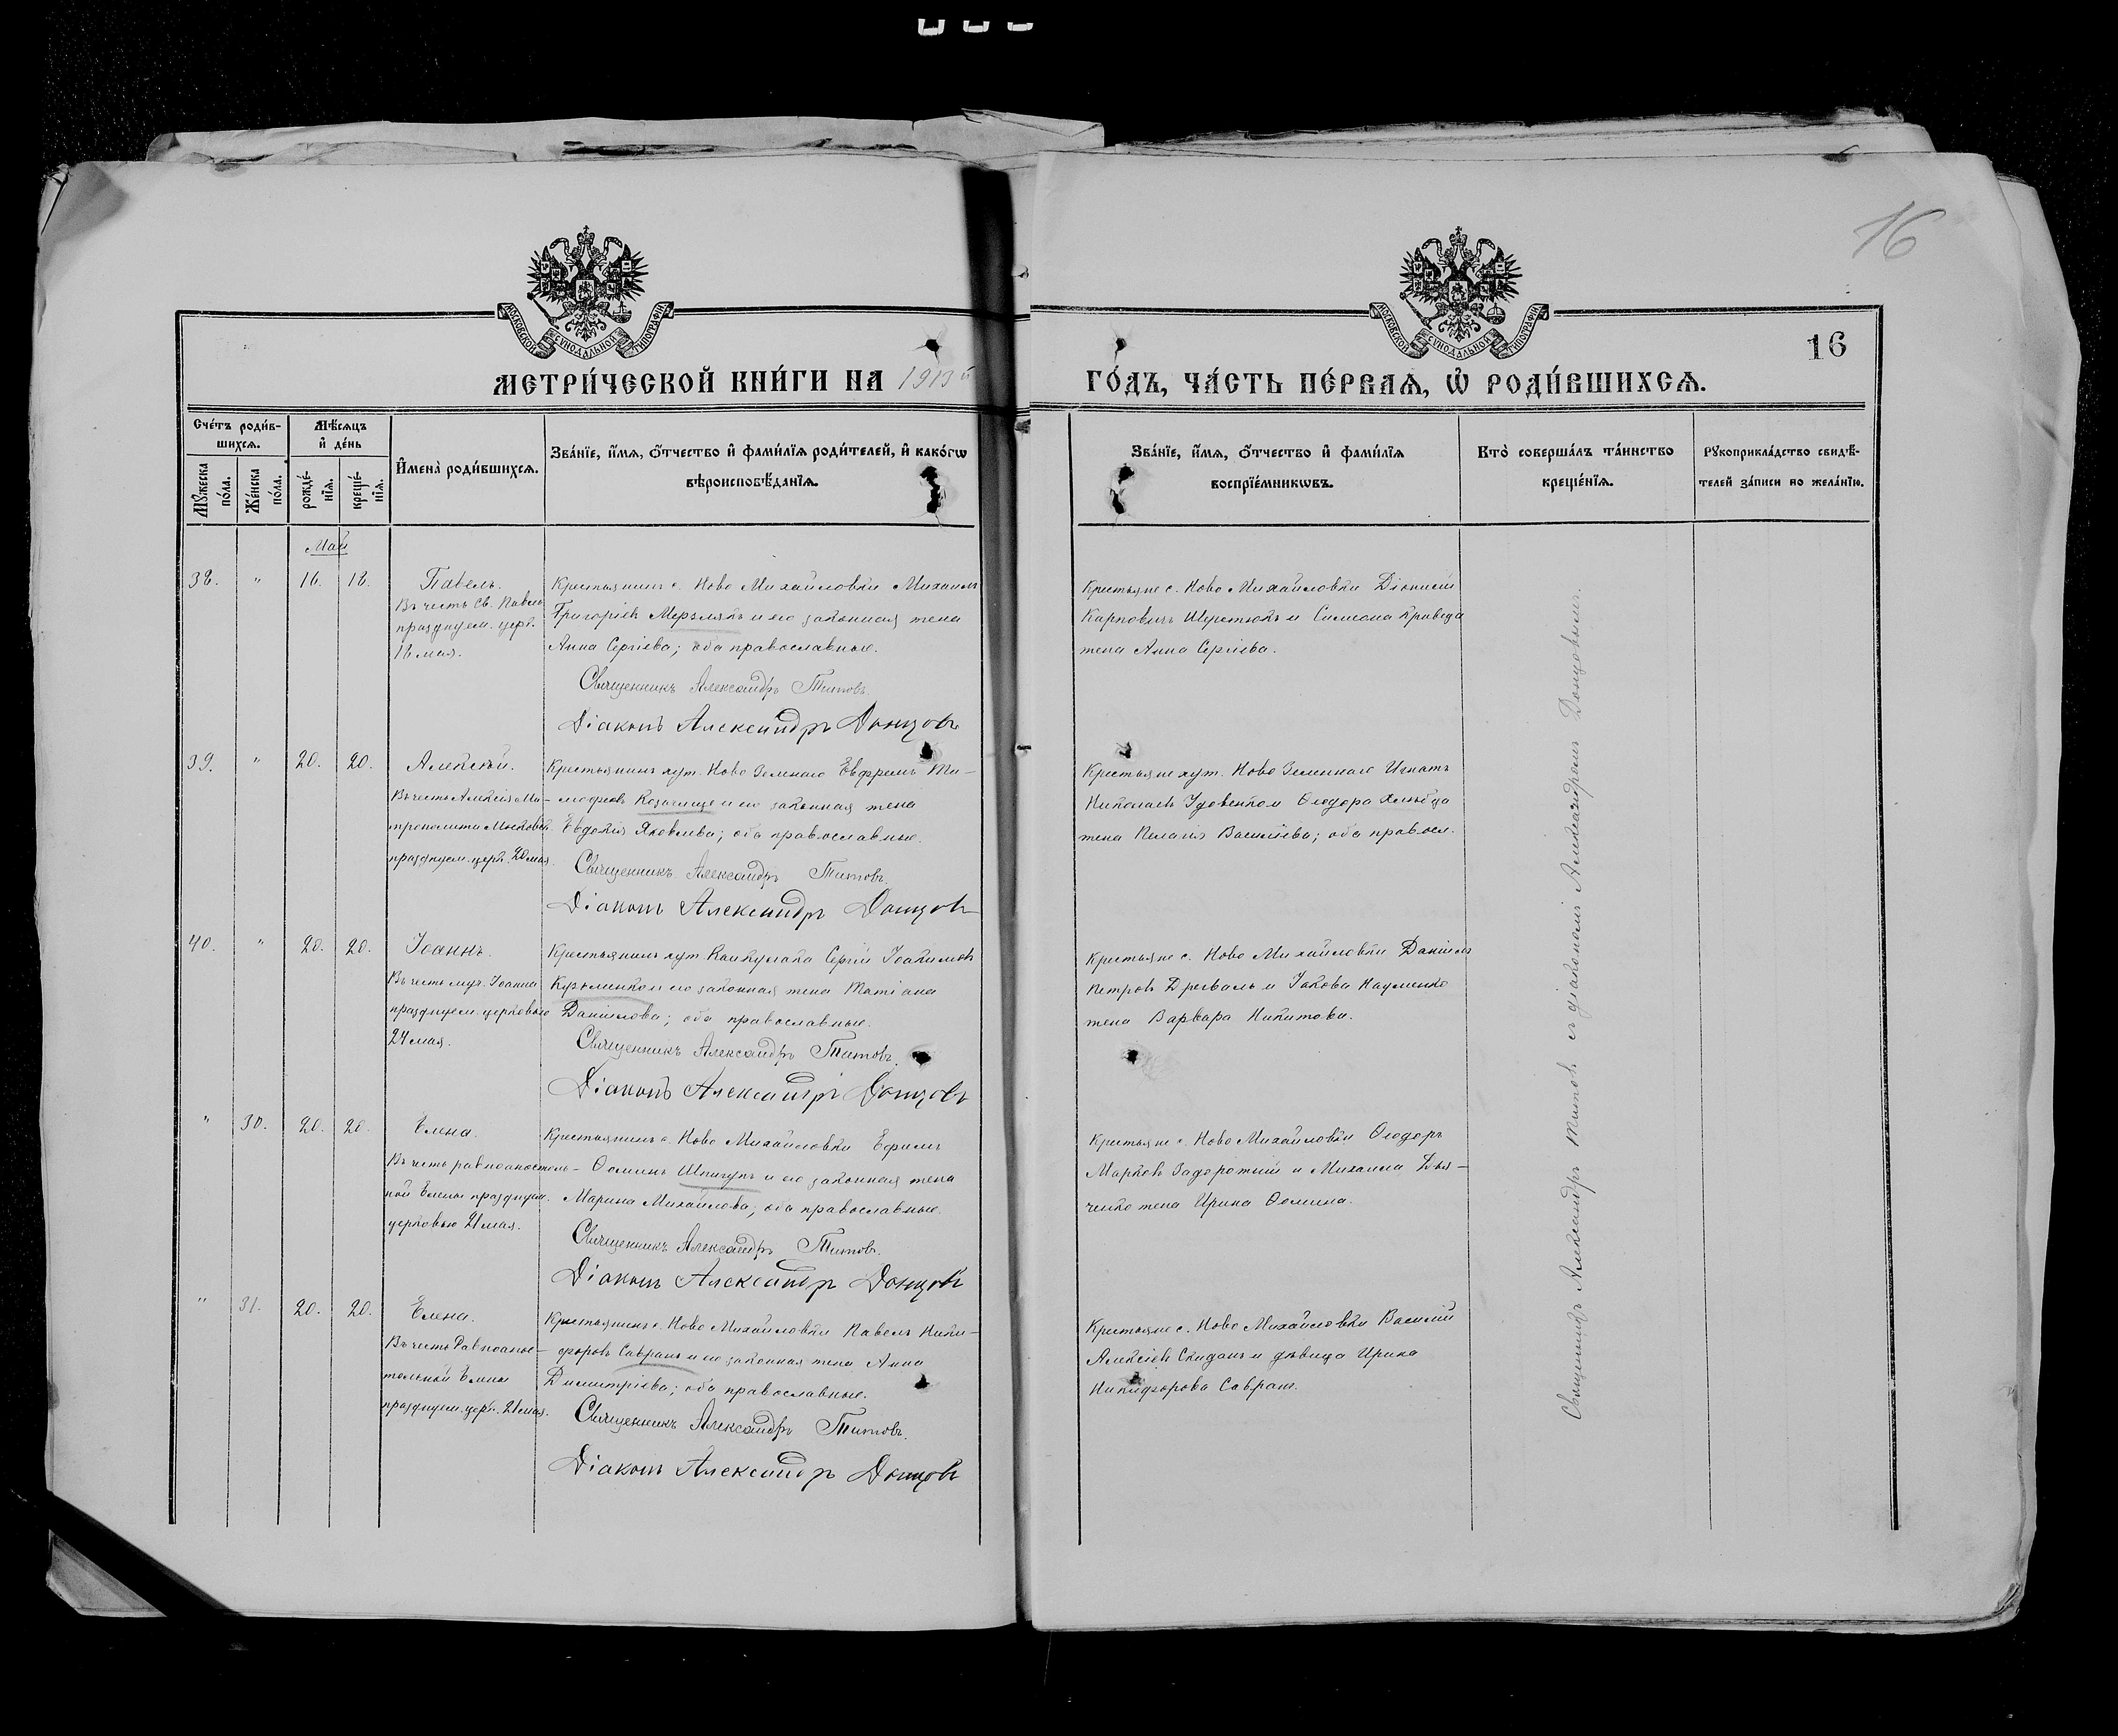 16
МОСКОВСКОЙ СУНОДАЛЬНОЙ ТИПОГРАФІИ
МОСКОВСКОЙ СУНОДАЛЬНОЙ ТИПОГРАФІИ
16
МЕТРИ́ЧЕСКОЙ КНИ́ГИ НА 1913
ГО́ДЪ, ЧА́СТЬ ПЕ́РВАѦ, Ѡ҆ РОДИ́ВШИХСѦ.
Сче́тъ роди́в-
шихсѧ.
Мꙋ́жеска по́ла.
Же́нска по́ла.
Мѣ́сѧцъ
и҆ де́нь
рожде́-
нїѧ.
креще́-
нїѧ.
И҆мена̀ роди́вшихсѧ.
Зва́нїе, и҆́мѧ, ѻ҆́тчество и҆ фами́лїѧ роди́телей, и҆ како́гѡ
вѣроисповѣ́данїѧ.
Зва́нїе, и҆́мѧ, ѻ҆́тчество и҆ фами́лїѧ
воспрїе́мникѡвъ.
Кто̀ соверша́лъ та́инство
креще́нїѧ.
Рꙋкоприкла́дство свидѣ́-
телей за́писи по жела́нїю.
Май
38. " 16. 18. Павелъ.
Въ честь Св. Павла
празднуем. церк.
16 мая.
Крестьянинъ с. Ново Михайловки Михаилъ
Григоріевъ Мерзлякъ и его законная жена
Анна Сергіева; оба православные.
Священникъ Александръ Титовъ.
Діаконъ Александръ Донцовъ
Крестьяне с. Ново Михайловки Діонисій
Карповичъ Шерстюкъ и Симеона Кравеца
жена Анна Сергіева.
39. " 20. 20. Алексѣй.
Въ честь Алексія Ми-
трополита Московск.
празднуем. церк. 20 мая.
Крестьянинъ хут. Ново Зеленаго Евфремъ Ти-
мофеевъ Козачище и его законная жена
Евдокія Яковлева; оба православные.
Священникъ Александръ Титовъ.
Діаконъ Александръ Донцовъ
Крестьяне хут. Ново Зеленаго Игнатъ
Николаевъ Удовенко и Ѳеодора Хлѣбца
жена Пелагія Васильева; оба правосл.
40. " 20. 20. Іоаннъ.
Въ честь муч. Іоанна
празднуем. церковью
24 мая.
Крестьянинъ хут. Каикулака Сергій Іоакимовъ
Кузьменко и его законная жена Татіана
Даніилова; оба православные.
Священникъ Александръ Титовъ.
Діаконъ Александръ Донцовъ
Крестьяне с. Ново Михайловки Даніилъ
Петровъ Древаль и Іакова Науменко
жена Варвара Никитова.
" 30. 20. 20. Елена.
Въ честь равноапостоль-
ной Елены празднуем.
церковью 21 мая.
Крестьянинъ с. Ново Михайловки Ефимъ
Ѳоминъ Шпигунъ и его законная жена
Марина Михайлова; оба православные.
Священникъ Александръ Титовъ.
Діаконъ Александръ Донцовъ
Крестьяне с. Ново Михайловки Ѳеодоръ
Марковъ Задорожній и Михаила Дья-
ченко жена Ирина Ѳомина.
" 31. 20. 20. Елена.
Въ честь Равноапос-
тельной Елены
празднуем. церк. 21 мая.
Крестьянинъ с. Ново Михайловки Павелъ Ники-
форовъ Савранъ и его законная жена Анна
Димитріева; оба православные.
Священникъ Александръ Титовъ.
Діаконъ Александръ Донцовъ
Крестьяне с. Ново Михайловки Василій
Алексіевъ Скиданъ и дѣвица Ирина
Никифорова Савранъ.
Священникъ Александръ Титовъ съ діакономъ Александромъ Донцовымъ.